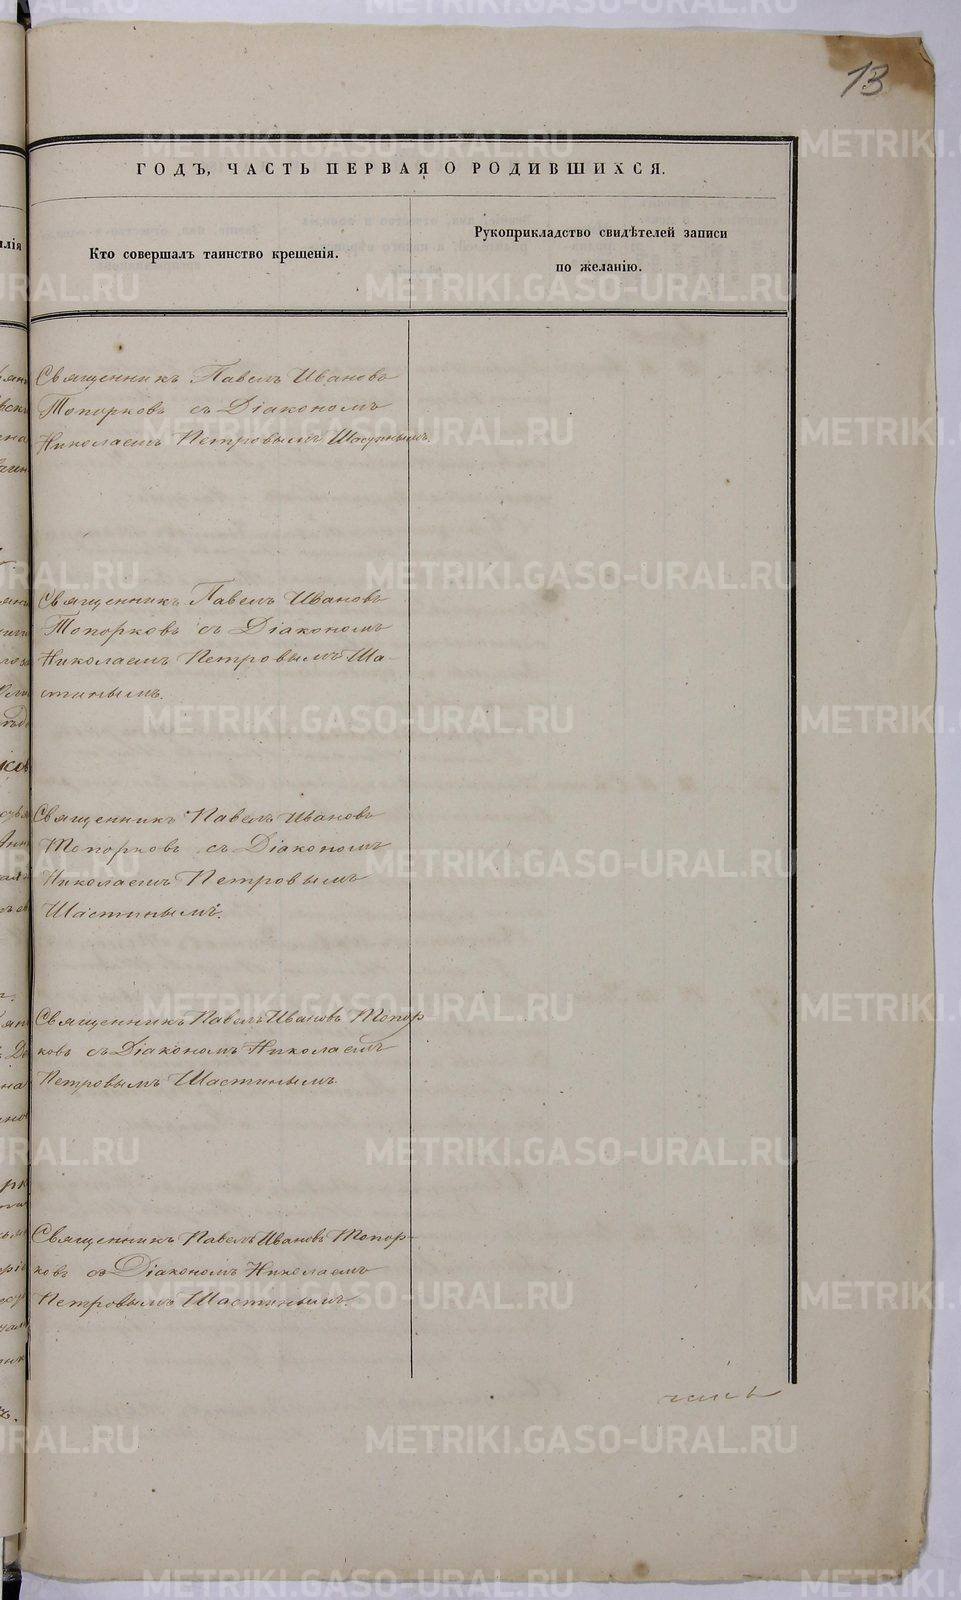 13
ГОДЪ, ЧАСТЬ ПЕРВАЯ О РОДИВШИХСЯ.
Кто совершалъ таинство крещенія.
Рукоприкладство свидѣтелей записи
по желанію.
Священникъ Павелъ Ивановъ
Топорковъ съ Діакономъ
Николаемъ Петровымъ
Священникъ Павелъ Ивановъ
Топорковъ съ Діакономъ
Николаемъ Петровымъ Ша-
стинымъ.
Священникъ Павелъ Ивановъ
Топорковъ съ Діакономъ
Николаемъ Петровымъ
Шастинымъ.
Священникъ Павелъ Ивановъ Топор
ковъ съ Діакономъ Николаемъ
Петровымъ Шастинымъ
Священникъ Павелъ Ивановъ Топор-
ковъ съ Діакономъ Николаемъ
Петровымъ Шастинымъ.
METRIKI.GASO-URAL.RU